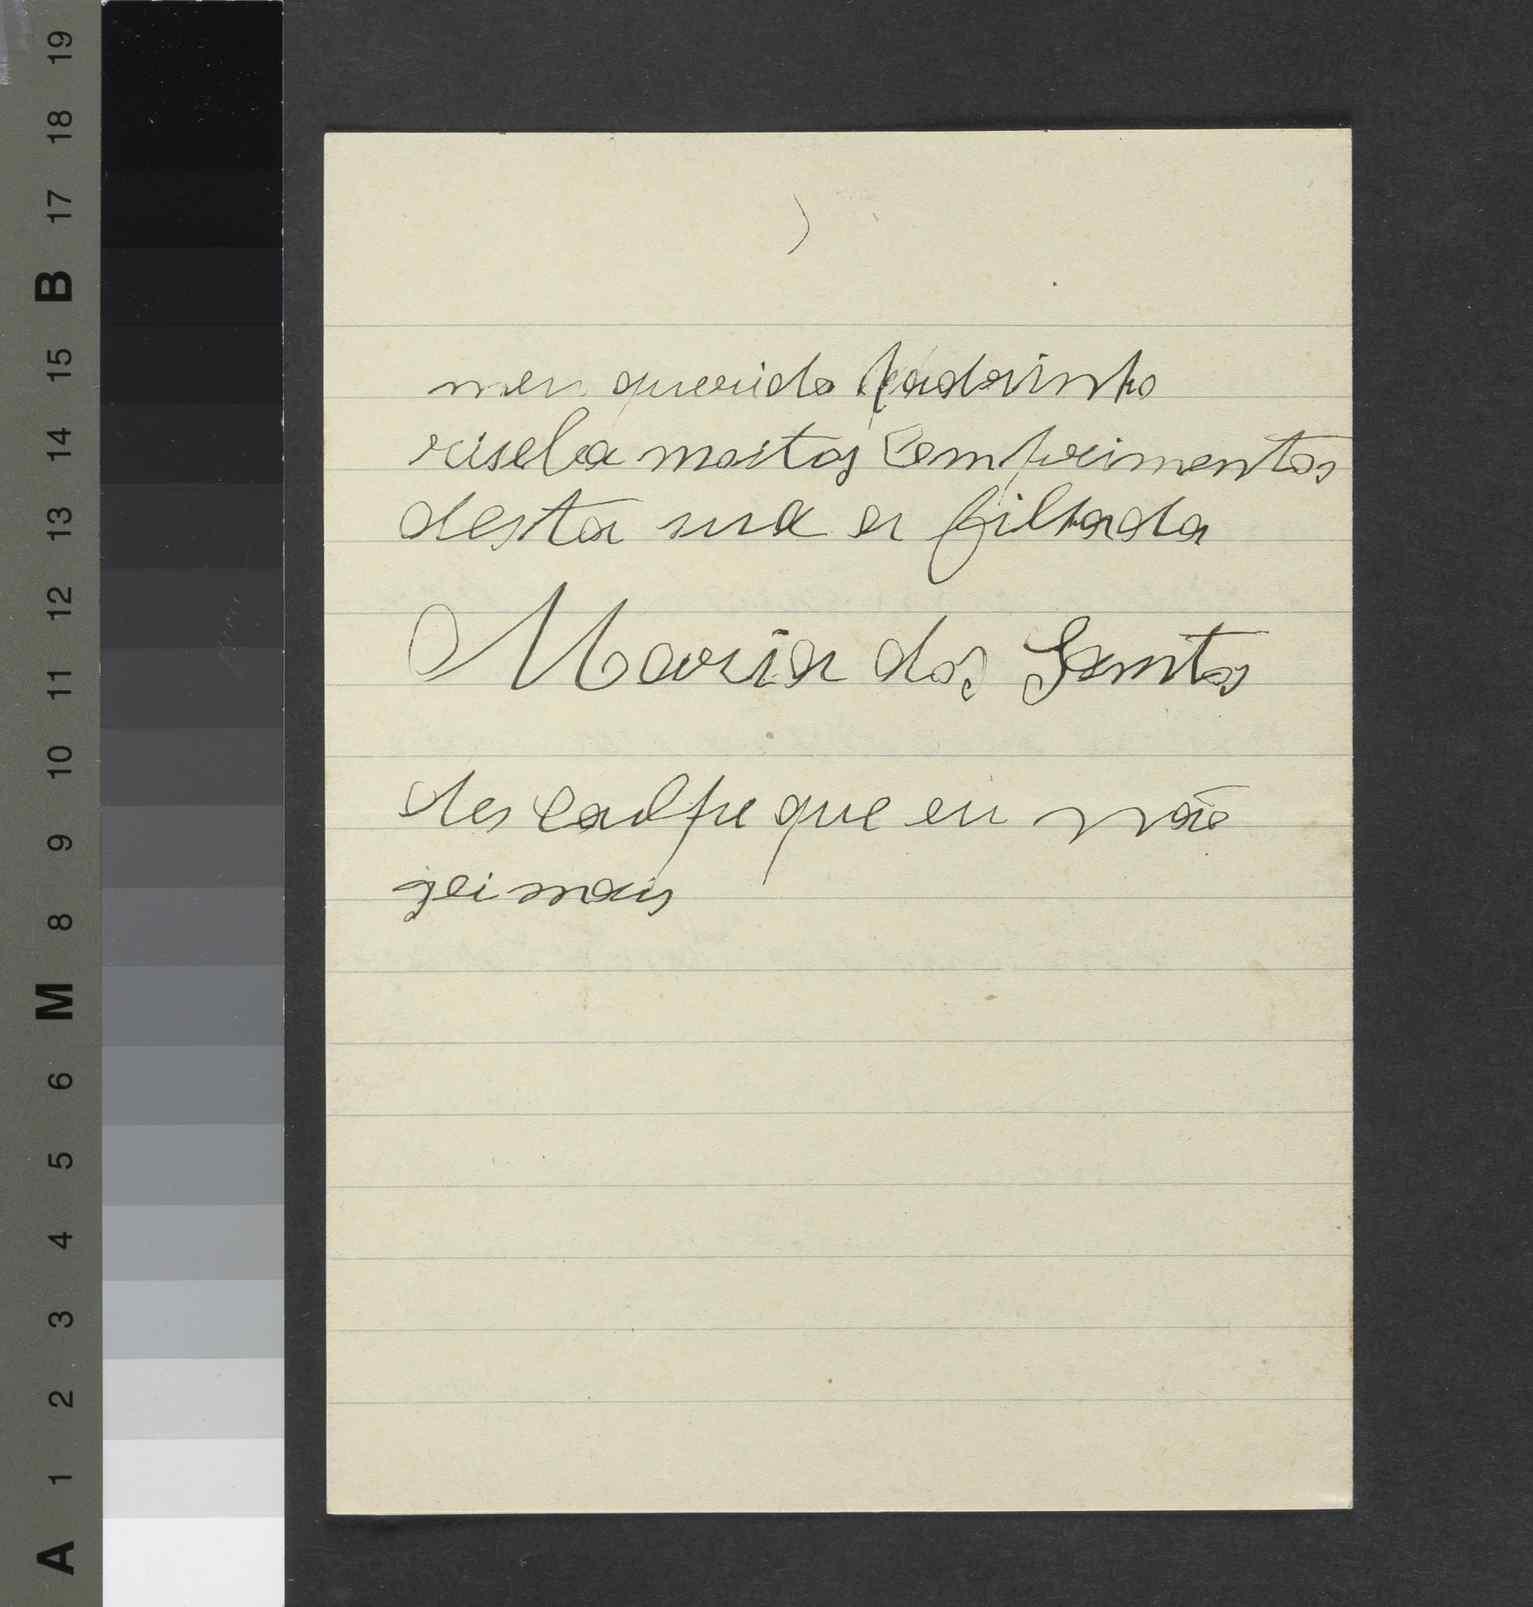 19
18
17
B
15
14
13
12
11
10
9
8
M
6
5
4
3
2
1
A
meu querido Padrinho
riseba moitos Comprimentos
desta sua a filhada
Maria dos Santos
des caulpe que eu não
zei mais